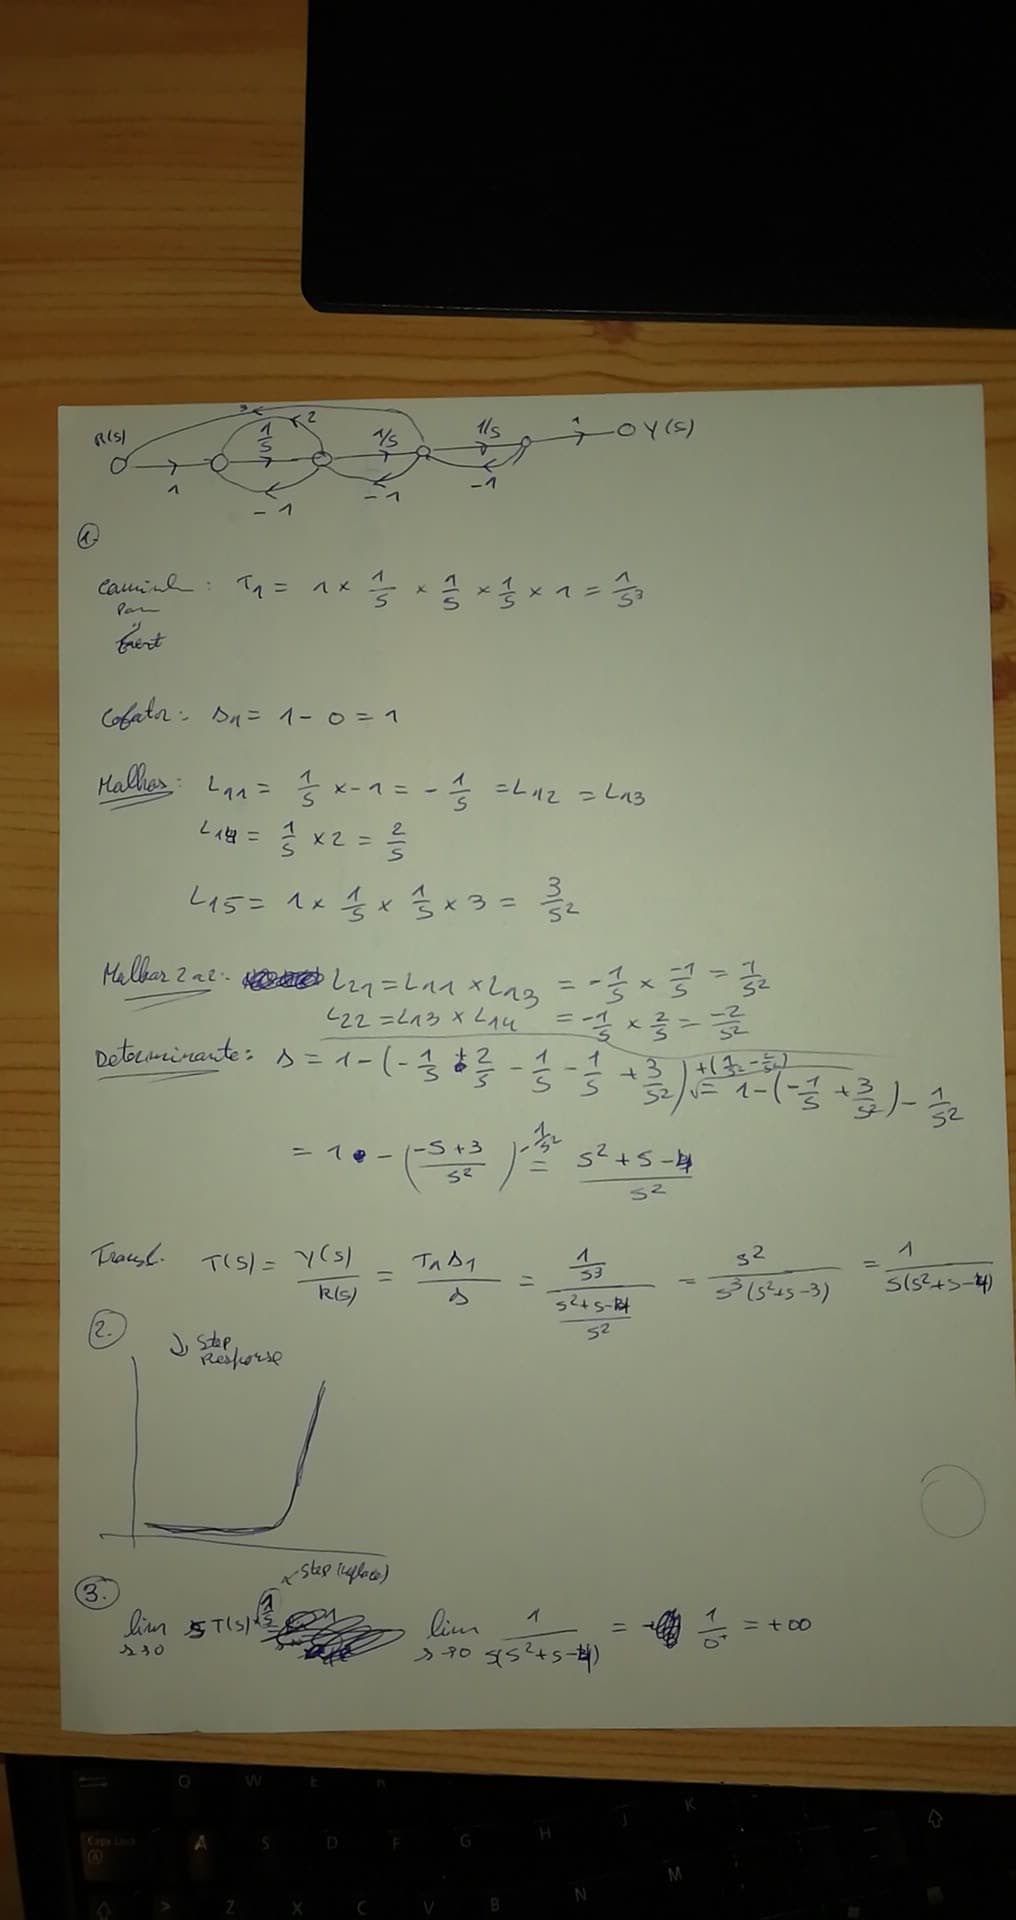 R(s) 1 1/s 2 3 -1 1/s -1 1/s -1 1 Y(s)
1.
Caminh : T1 = 1 × 1/s × 1/s × 1/s × 1 = 1/s³
Cofator: Δ1 = 1 - 0 = 1
Malhas: L11 = 1/s × -1 = -1/s = L12 = L13
L14 = 1/s × 2 = 2/s
L15 = 1 × 1/s × 1/s × 3 = 3/s²
Malhas 2 a 2: L21 = L11 × L13 = -1/s × -1/s = 1/s²
L22 = L13 × L14 = -1/s × 2/s = -2/s²
Determinante: Δ = 1 - (-1/s + 2/s - 1/s - 1/s + 3/s²) + (1/s² - 2/s²) = 1 - (-1/s + 3/s²) - 1/s²
= 1 - ((-s + 3)/s²) - 1/s² = (s² + s - 4)/s²
Transf. T(s) = Y(s)/R(s) = T1 Δ1/Δ = (1/s³)/((s² + s - 4)/s²) = s²/(s³(s² + s - 3)) = 1/(s(s² + s - 4))
2.
Step
Response
Step
3.
lim s→0 s T(s) × 1/s = lim s→0 1/(s(s² + s - 4)) = 1/0⁺ = +∞
Caps Lock
A S D F G H J K
Z X C V B N M
Q W E R